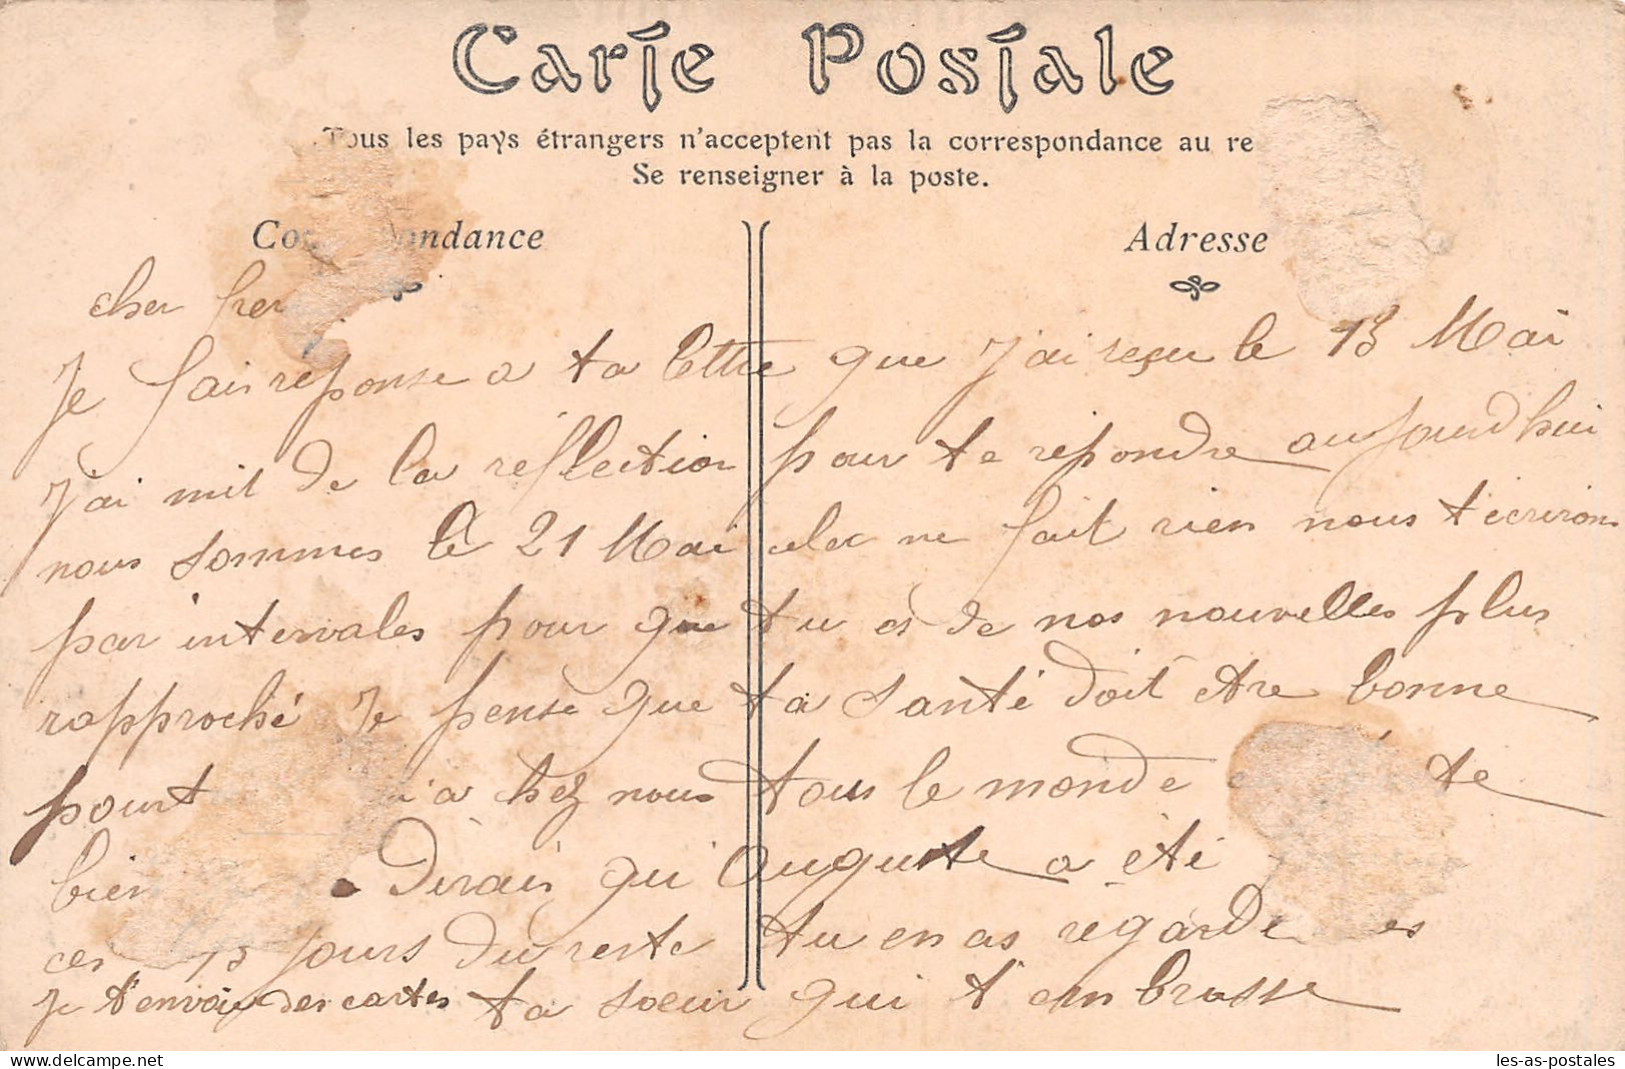 Carte Postale
Tous les pays étrangers n'acceptent pas la correspondance au re
Se renseigner à la poste.
Co ndance
Adresse
cher frer
Je fais reponse a ta lettre que J'ai reçu le 13 Mai
J'ai mit de la réflection pour te répondre aujourdhui
nous sommes le 21 Mai celac ne fait rien nous t'écrirons
par intervales pour que tu es de nos nouvelles plus
rapproché Je pense que ta santé doit etre bonne
pourt i a chez nous tous le monde te
bien Dirais qui Auguste a été
ces 13 jours du reste tu en as regarde es
Je t'envoie des cartes ta soeur qui t'embrasse
delcampe.net
les-as-postales